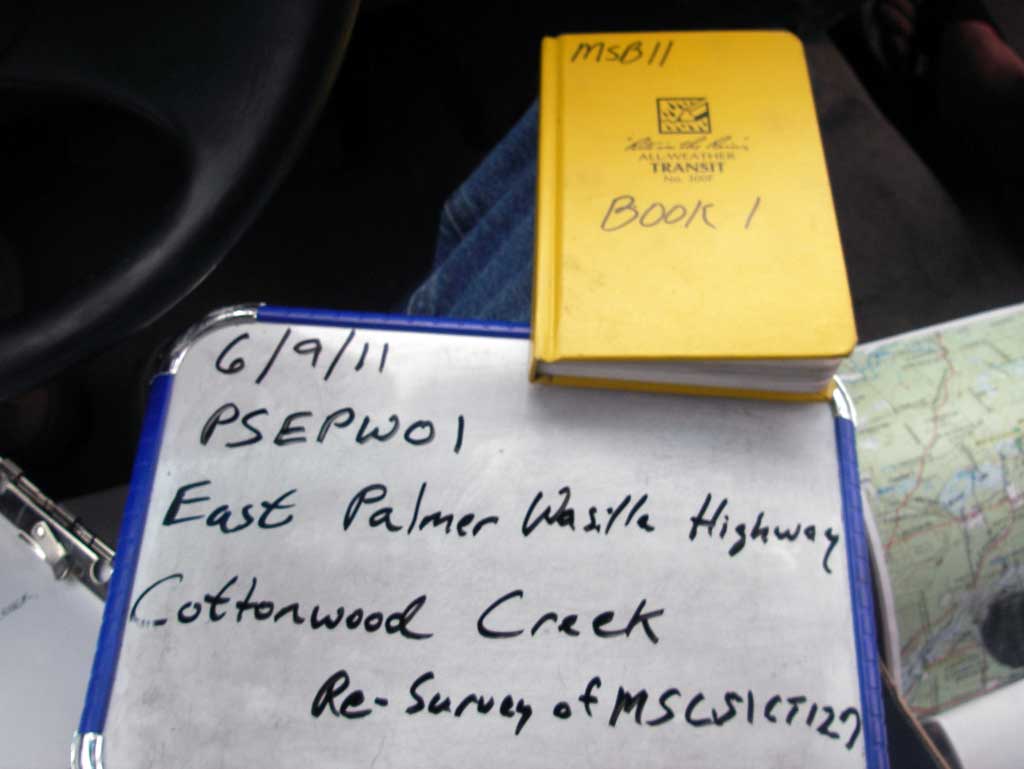 MSB11
"Rite in the Rain"
ALL-WEATHER
TRANSIT
No. 300F
BOOK 1
6/9/11
PSEPW01
East Palmer Wasilla Highway
Cottonwood Creek
Re-Survey of